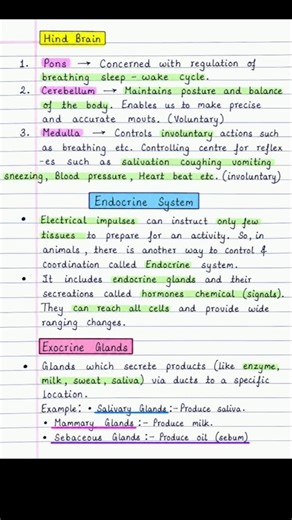 Hind Brain
1. Pons → Concerned with regulation of
breathing sleep - wake cycle.
2. Cerebellum → Maintains posture and balance
of the body. Enables us to make precise
and accurate mouts. (Voluntary)
3. Medulla → Controls involuntary actions such
as breathing etc. Controlling centre for reflex
-es such as salivation coughing vomiting
sneezing, Blood pressure, Heart beat etc. (involuntary)
Endocrine System
• Electrical impulses can instruct only few
tissues to prepare for an activity. So, in
animals, there is another way to control &
coordination called Endocrine system.
• It includes endocrine glands and their
secreations called hormones chemical (signals).
They can reach all cells and provide wide
ranging changes.
Exocrine Glands
• Glands which secrete products (like enzyme,
milk, sweat, saliva) via ducts to a specific
location.
Example: • Salivary Glands :- Produce saliva.
• Mammary Glands :- Produce milk.
• Sebaceous Glands :- Produce oil (sebum)